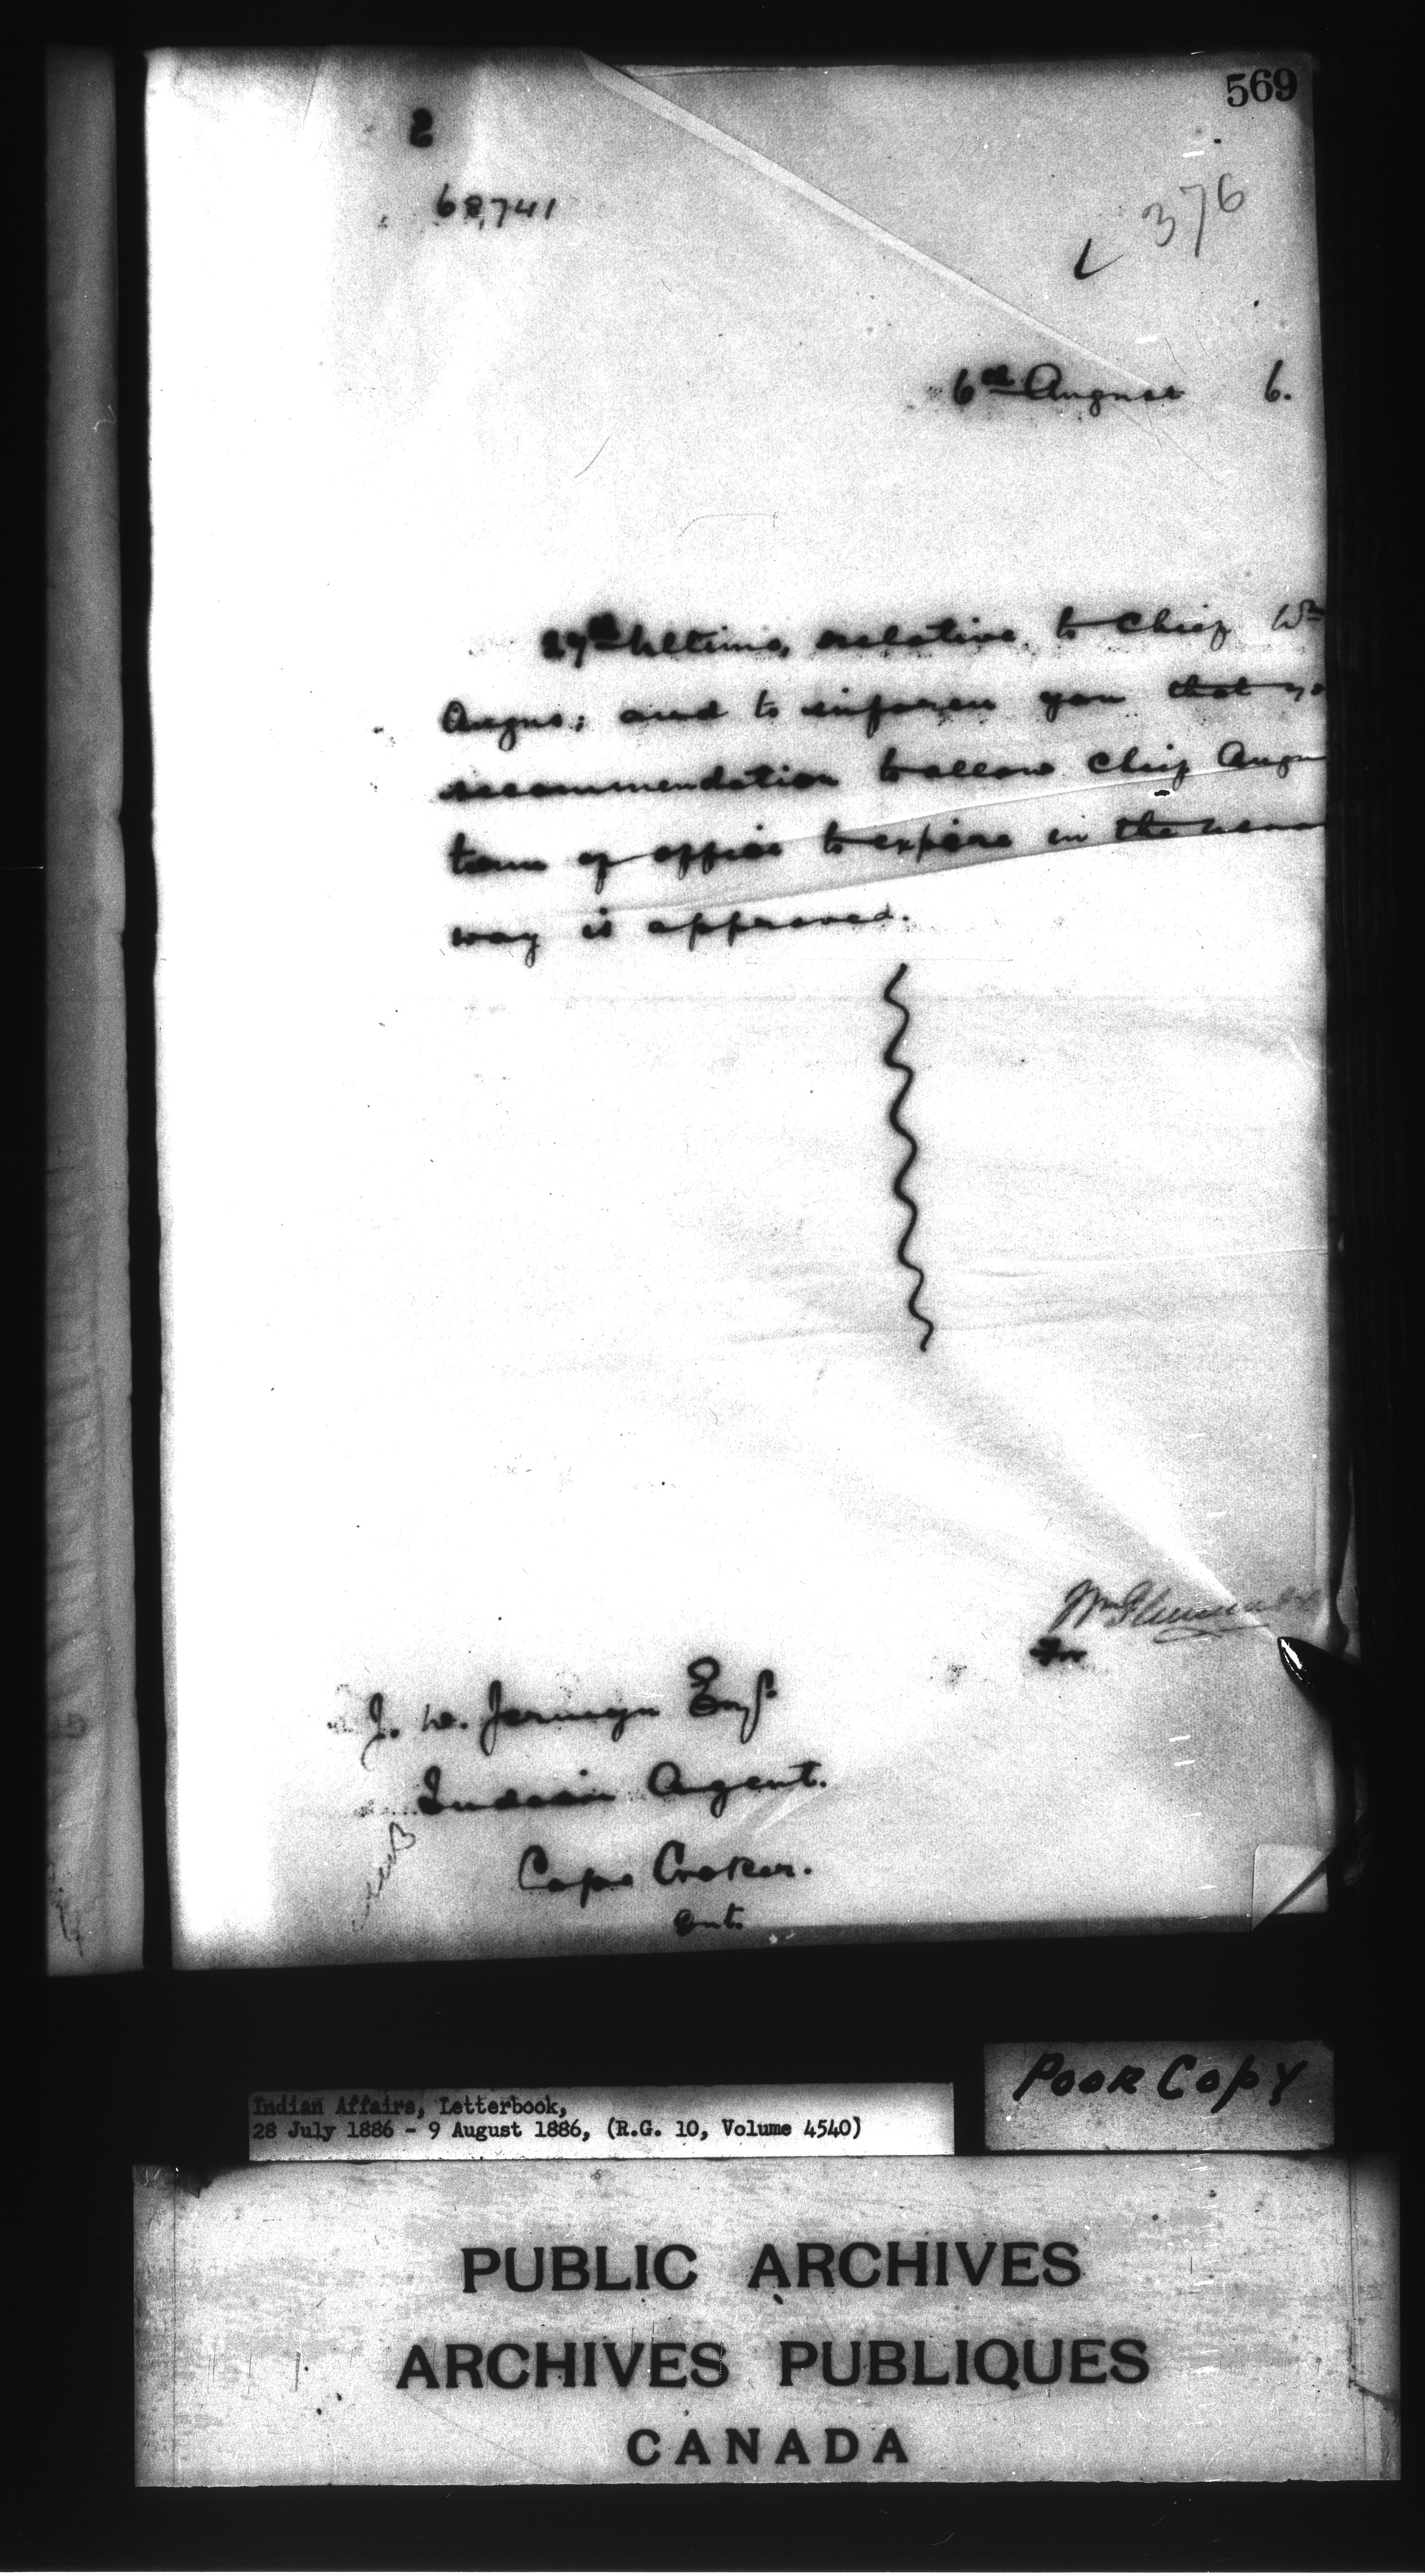 569
2
68,741
376
6th August 6.
29th Ultimo, relative to Chief Wm
Angus; and to inform you that yo
recommendation to allow Chief Angu
term of office to expire in the usua
way is approved.
for
J. W. Jermyn Esq.
Indian Agent.
Cape Croker.
Ont.
Poor Copy
Indian Affairs, Letterbook,
28 July 1886 - 9 August 1886, (R.G. 10, Volume 4540)
PUBLIC ARCHIVES
ARCHIVES PUBLIQUES
CANADA